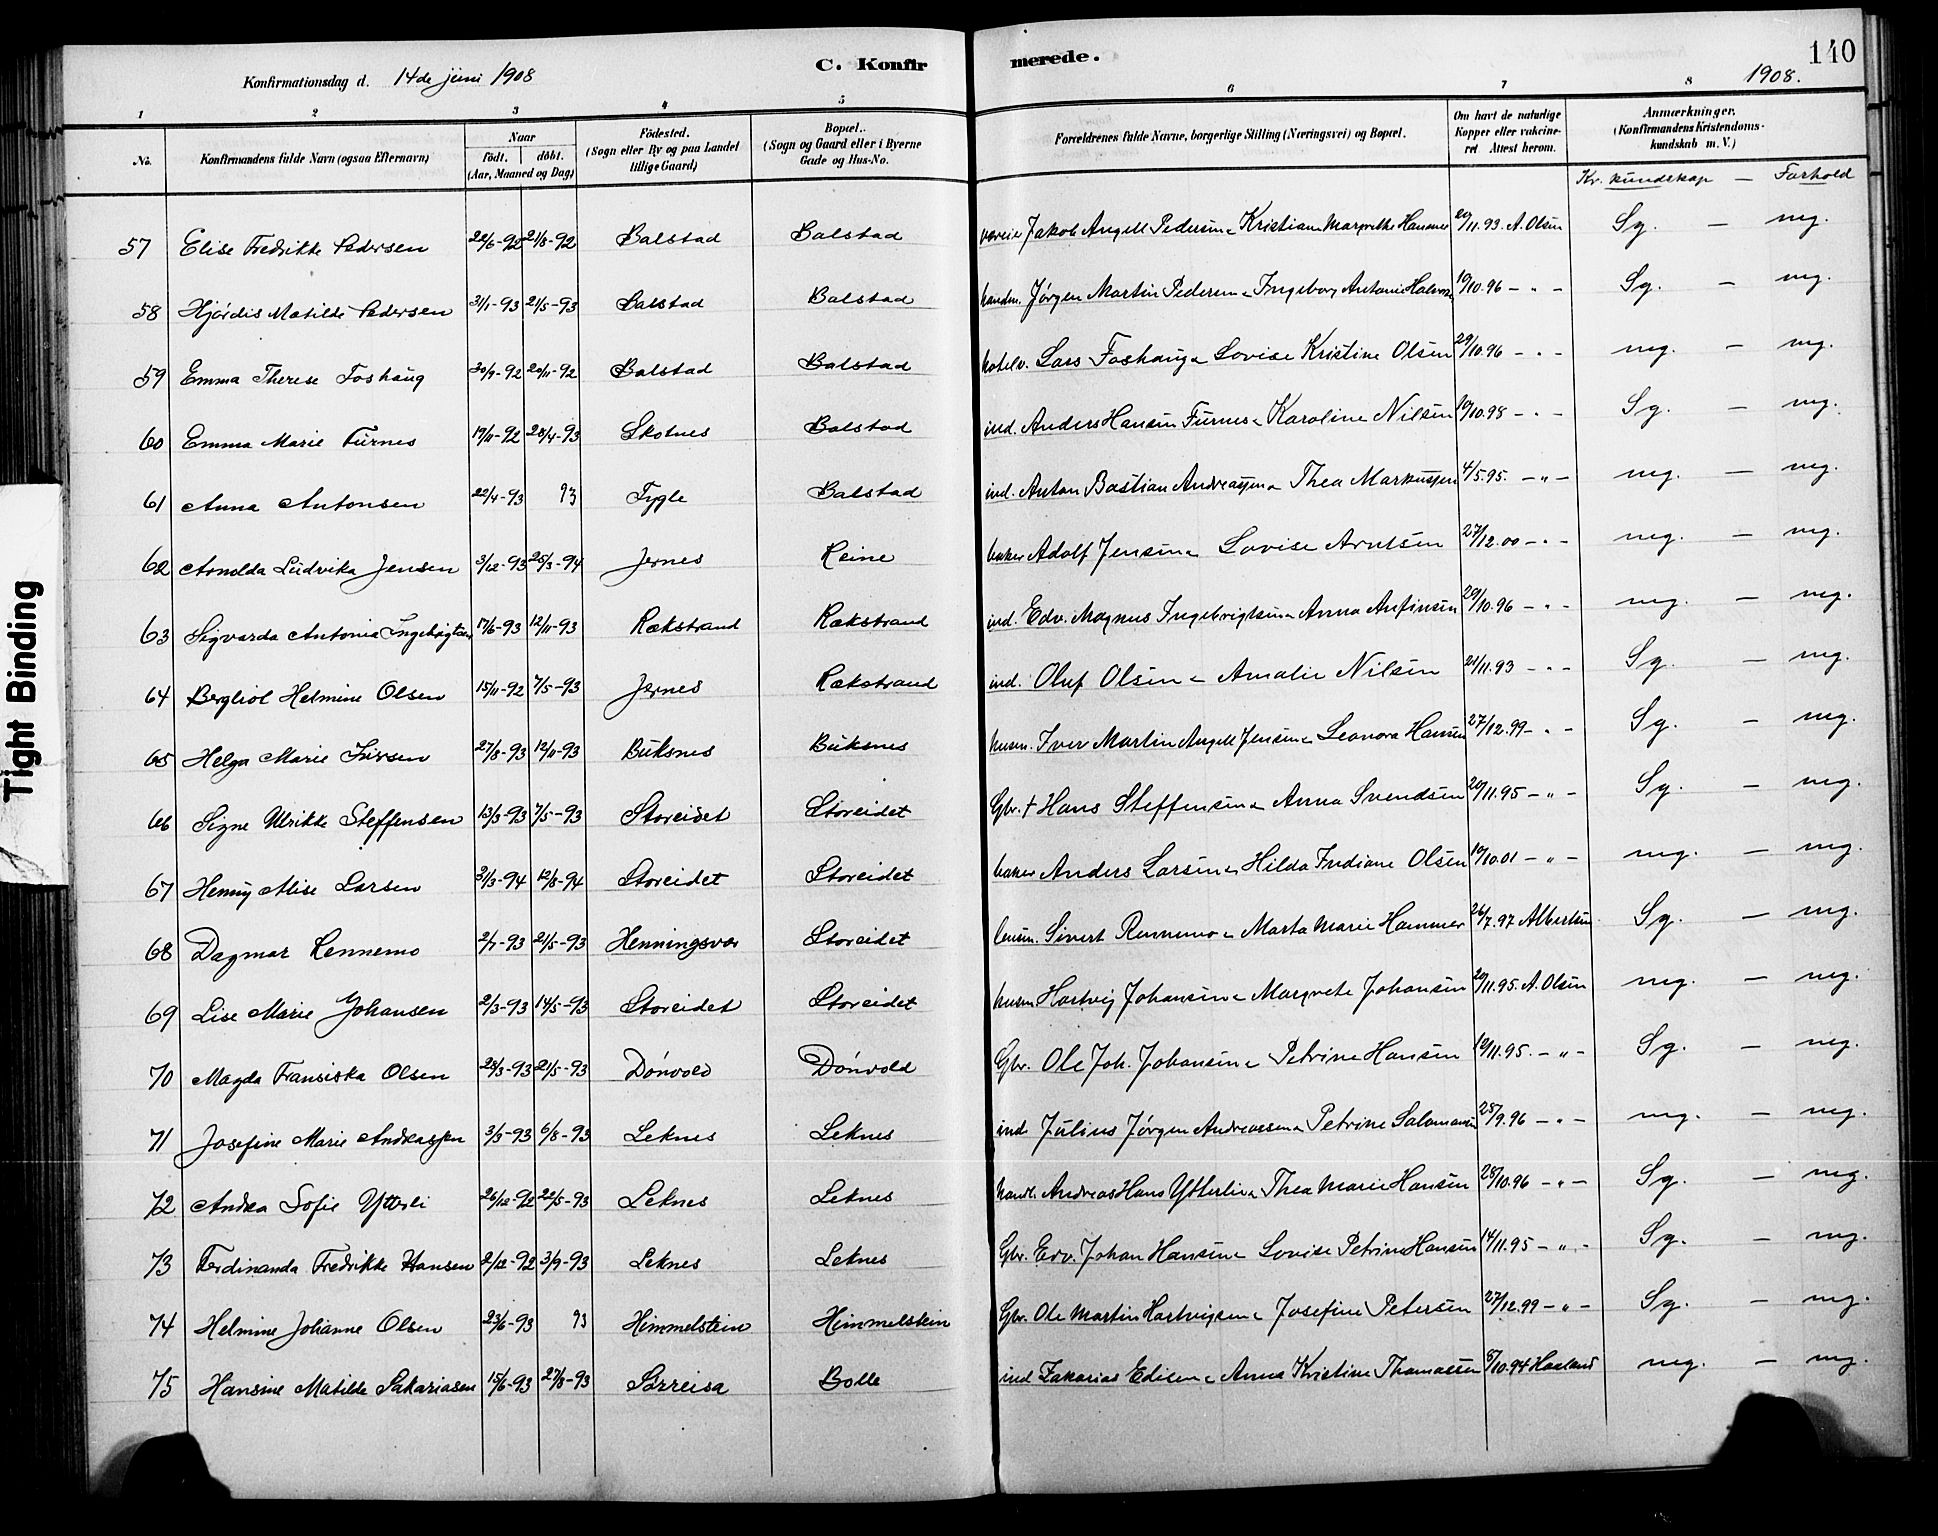 C. Konfirmerede.
140
Konfirmationsdag d. 14de juni 1908
1908.
1 2 3 4 5 6 7 8
No. Konfirmandens fulde Navn (ogsaa Efternavn) Naar födt. döbt. (Aar, Maaned og Dag) Födested. (Sogn eller By og paa Landet tillige Gaard) Bopæl. (Sogn og Gaard eller i Byerne Gade og Hus-No. Forældrenes fulde Navne, borgerlige Stilling (Næringsvei) og Bopæl. Om havt de naturlige Kopper eller vakcineret. Attest herom. Anmærkninger. (Konfirmandens Kristendomskundskab m. V.)
Kr. kundskap — Forhold
57 Elise Fredrikke Pedersen 22/6-92 21/8-92 Balstad Balstad Jakob Angell Pedersen Kristiane Margrethe Hammer 20/11.93. A. Olsen Sg. — mg.
58 Hjördis Matilde Pedersen 31/1-93 21/5-93 Balstad Balstad handm. Jørgen Martin Pedersen Ingeborg Antonie 19/10.96 - " - Sg. — mg.
59 Emma Therese Foshaug 30/9-92 20/11-92 Balstad Balstad Lars Foshaug Lovise Kristine Olsen 29/10.96 - " - mg. — mg.
60 Emma Marie Furnes 19/11-92 28/4-93 Skotnes Balstad ind. Anders Hansen Furnes Karoline Nilsen 19/10.98 - " - Sg. — mg.
61 Anna Antonsen 22/4-93 93 Fygle Balstad ind. Anton Bastian Andreassen Thea Markussen 4/5.95. - " - mg. — mg.
62 Arnolda Ludvika Jensen 3/12-93 25/3-94 Jernes Reine baker Adolf Jensen Lovise Arntsen 27/12.00 - " - mg. — mg.
63 Sigvarda Antonia Ingebrigtsen 17/6-93 12/11-93 Rækstrand Rækstrand ind. Edv. Magnus Ingebrigtsen Anna Anfinsen 29/10.96 - " - mg. — mg.
64 Bergliot Helmine Olsen 15/11-92 7/5-93 Jernes Rækstrand ind. Oluf Olsen Amalie Nilsen 21/11.93 - " - Sg. — mg.
65 Helga Marie Iversen 27/8-93 12/11-93 Buksnes Buksnes husm. Iver Martin Angell Jensen Leonora Hansen 27/12.99 - " - Sg. — mg.
66 Signe Ulrikke Steffensen 13/3-93 7/5-93 Storeidet Storeidet Gbr. † Hans Steffensen Anna Svendsen 20/11.95 - " - Sg. — mg.
67 Henny Alise Larsen 3/3-94 12/8-94 Storeidet Storeidet baker Anders Larsen Hilda Indiane Olsen 19/10.01 - " - mg. — mg.
68 Dagmar Rennemo 2/1-93 21/5-93 Henningsvær Storeidet lensm. Sivert Rennemo Marta Marie Hammer 26/7.97 Albertsen Sg. — mg.
69 Lise Marie Johansen 2/3-93 14/5-93 Storeidet Storeidet husm Hartvig Johansen Margrete Johansen 20/11.95. A. Olsen mg. — mg.
70 Magda Fransiska Olsen 28/3-93 21/5-93 Dönvold Dönvold Gbr. Ole Joh. Johansen Petrine Hansen 19/11.95. - " - Sg. — mg.
71 Josefine Marie Andreassen 3/3-93 6/8-93 Leknes Leknes ind. Julius Jørgen Andreassen Petrine Salamonsen 28/9.96 - " - mg. — mg.
72 Andrea Sofie Ytterli 26/12-92 22/5-93 Leknes Leknes handl. Andreas Hans Ytterli Thea Marie Hansen 28/10.96 - " - Sg. — mg.
73 Ferdinanda Fredrikke Hansen 2/12-92 3/9-93 Leknes Leknes Gbr. Edv. Johan Hansen Lovise Petrine Hansen 14/11.95 - " - Sg. — mg.
74 Helmine Johanne Olsen 23/6-93 93 Himmelstein Himmelstein Gbr. Ole Martin Hartvigsen Josefine Petersen 27/12.99 - " - Sg. — mg.
75 Hansine Matilde Sakariasen 15/6-93 27/8-93 Sørreisa Bolle ind Zakarias Edisen Anna Kristine Thomassen 8/10.94 Hasland mg. — mg.
Tight Binding